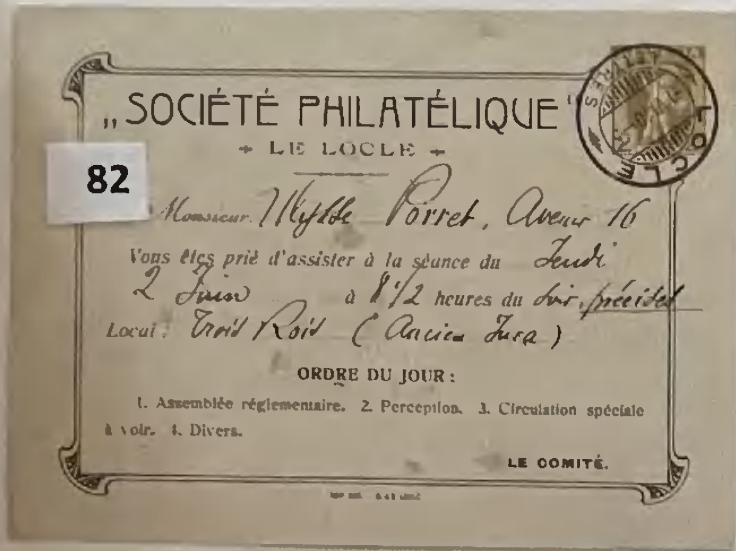 „SOCIÉTÉ PHILATÉLIQUE"
+ LE LOCLE +
82
Monsieur Porret, Avenir 16
Vous êtes prié d'assister à la séance du Jeudi
2 Juin à 8 1/2 heures du soir, précises
Local: Trois Rois (Ancien Jura)
ORDRE DU JOUR:
1. Assemblée réglementaire. 2. Perception. 3. Circulation spéciale
à voir. 4. Divers.
LE COMITÉ.
LOCLE
LETTRES